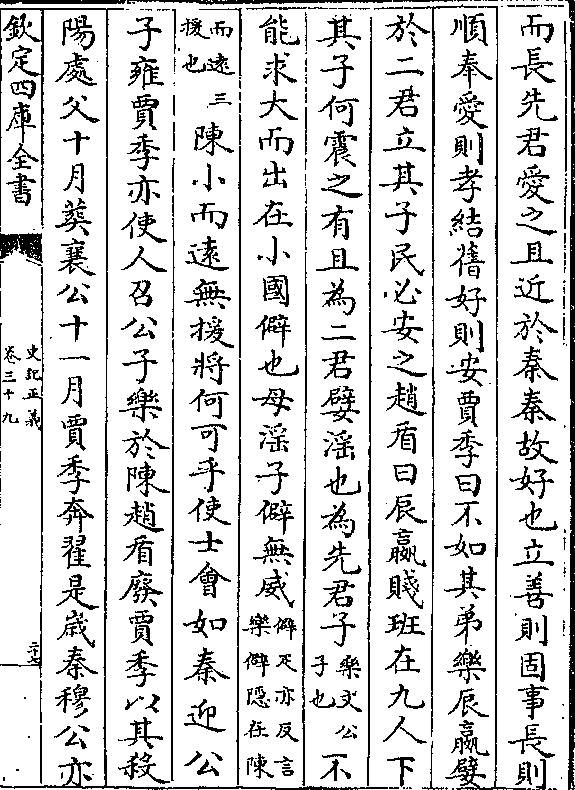 而長先君愛之且近於秦秦故好也立善則固事長則
順奉愛則孝結舊好則安賈季曰不如其弟樂辰嬴嬖
於二君立其子民必安之趙盾曰辰嬴賤班在九人下
其子何震之有且為二君嬖淫也為先君子樂文公子也不
能求大而出在小國僻也母淫子僻無威僻疋亦反言樂僻隱在陳
而遠援也三陳小而遠無援將何可乎使士會如秦迎公
子雍賈季亦使人召公子樂於陳趙盾廢賈季以其殺
陽處父十月葬襄公十一月賈季奔翟是歲秦穆公亦
欽定四庫全書
史記正義
卷三十九
三十七